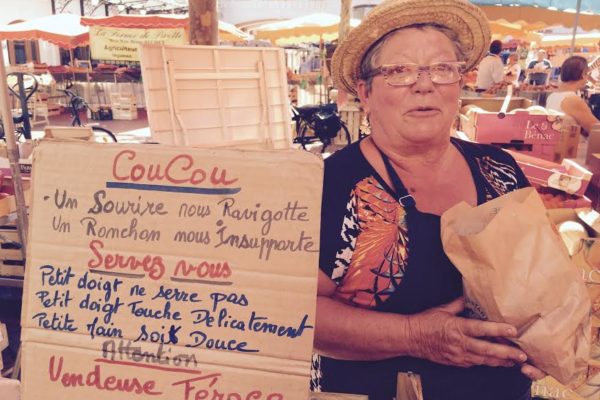 La Ferme de Pirette
CouCou
- Un Sourire nous Ravigotte
Un Ronchon nous Insupporte
Servez vous
Petit doigt ne serre pas
Petit doigt Touche Délicatement
Petite Main sois Douce
Attention
Vendeuse Féroce
Le
Benac